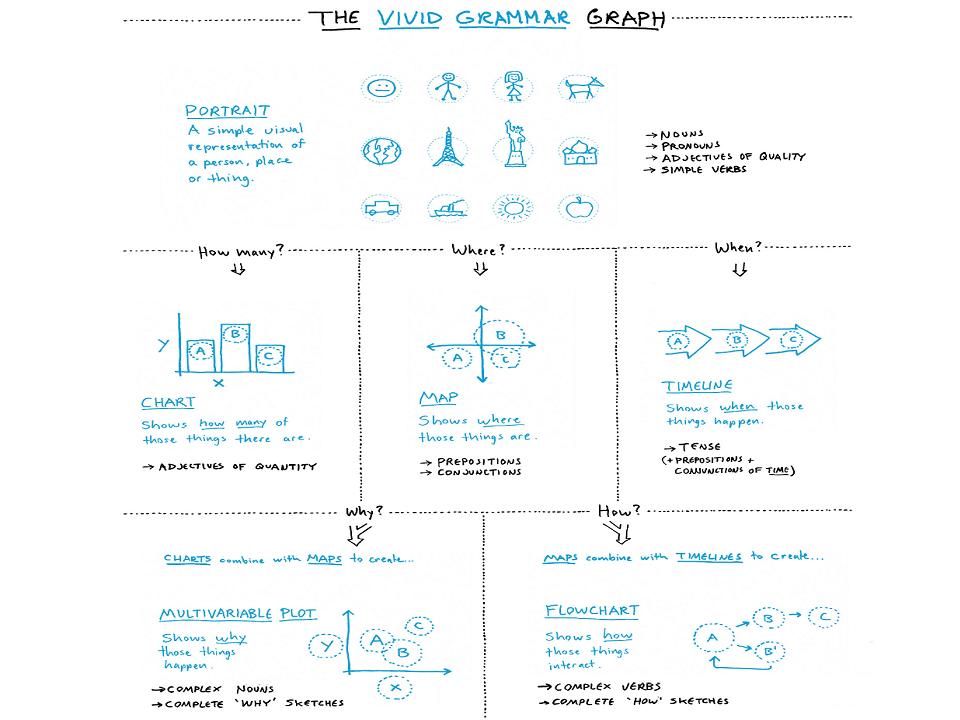 THE VIVID GRAMMAR GRAPH
PORTRAIT
A simple visual
representation of
a person, place
or thing.
→ NOUNS
→ PRONOUNS
→ ADJECTIVES OF QUALITY
→ SIMPLE VERBS
How many?
Where?
When?
Y
A
B
C
X
CHART
Shows how many of
those things there are.
→ ADJECTIVES OF QUANTITY
B
A
C
MAP
Shows where
those things are.
→ PREPOSITIONS
→ CONJUNCTIONS
A
B
C
TIMELINE
Shows when those
things happen.
→ TENSE
(+ PREPOSITIONS +
CONJUNCTIONS OF TIME)
Why?
How?
CHARTS combine with MAPS to create...
MULTIVARIABLE PLOT
Shows why
those things
happen.
→ COMPLEX NOUNS
→ COMPLETE 'WHY' SKETCHES
Y
A
B
C
X
MAPS combine with TIMELINES to create...
FLOWCHART
Shows how
those things
interact.
→ COMPLEX VERBS
→ COMPLETE 'HOW' SKETCHES
A
B
C
B'